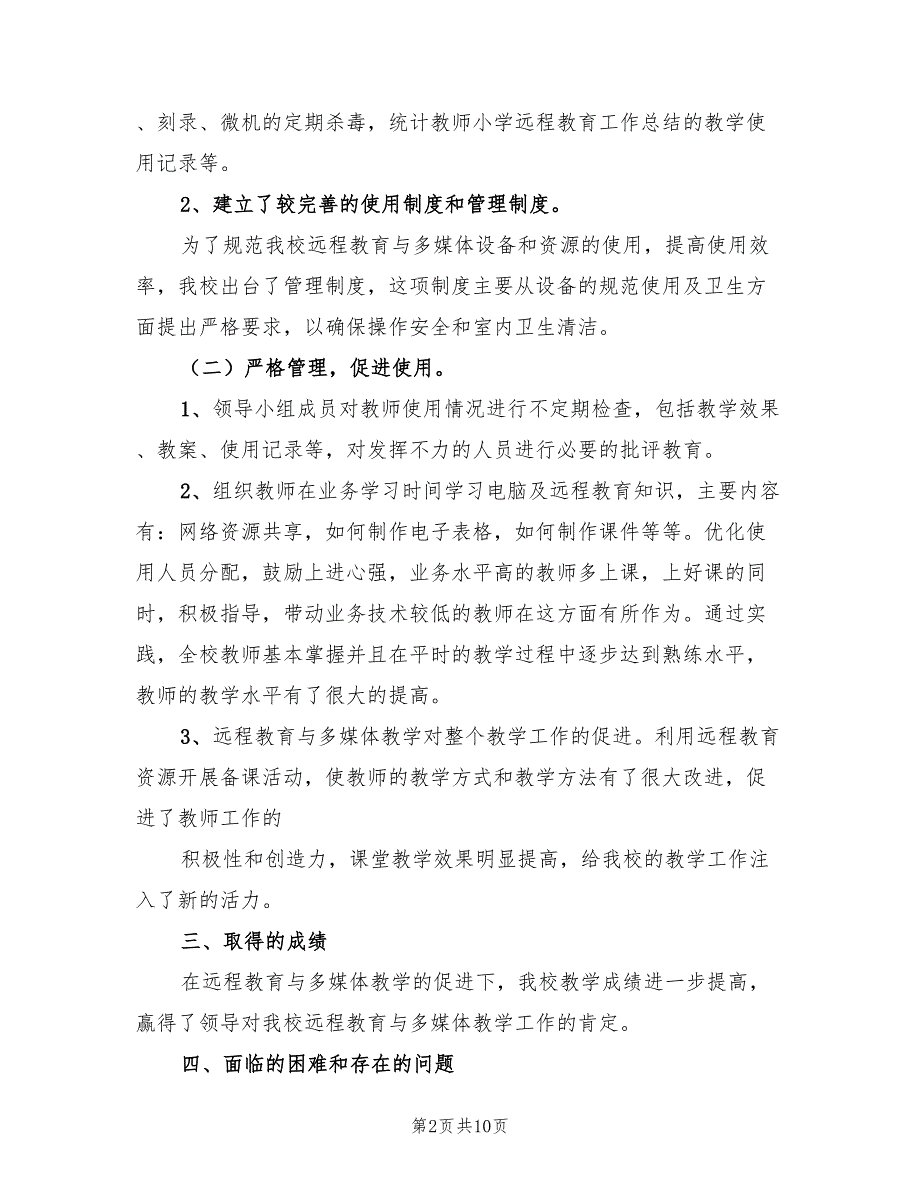 、刻录、微机的定期杀毒，统计教师小学远程教育工作总结的教学使
用记录等。
2、建立了较完善的使用制度和管理制度。
为了规范我校远程教育与多媒体设备和资源的使用，提高使用效
率，我校出台了管理制度，这项制度主要从设备的规范使用及卫生方
面提出严格要求，以确保操作安全和室内卫生清洁。
（二）严格管理，促进使用。
1、领导小组成员对教师使用情况进行不定期检查，包括教学效果
、教案、使用记录等，对发挥不力的人员进行必要的批评教育。
2、组织教师在业务学习时间学习电脑及远程教育知识，主要内容
有：网络资源共享，如何制作电子表格，如何制作课件等等。优化使
用人员分配，鼓励上进心强，业务水平高的教师多上课，上好课的同
时，积极指导，带动业务技术较低的教师在这方面有所作为。通过实
践，全校教师基本掌握并且在平时的教学过程中逐步达到熟练水平，
教师的教学水平有了很大的提高。
3、远程教育与多媒体教学对整个教学工作的促进。利用远程教育
资源开展备课活动，使教师的教学方式和教学方法有了很大改进，促
进了教师工作的
积极性和创造力，课堂教学效果明显提高，给我校的教学工作注
入了新的活力。
三、取得的成绩
在远程教育与多媒体教学的促进下，我校教学成绩进一步提高，
赢得了领导对我校远程教育与多媒体教学工作的肯定。
四、面临的困难和存在的问题
第2页共10页